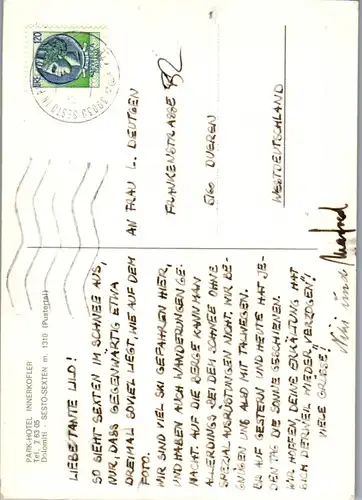 PARK-HOTEL INNERKOFLER
Tel. 7 63 05
Dolomiti - SESTO-SEXTEN m. 1310 (Pustertal)
LIEBE TANTE LILO!
SO SIEHT SEXTEN IM SCHNEE AUS,
NUR, DASS GEGENWÄRTIG ETWA
DREIMAL SOVIEL LIEGT, WIE AUF DEM
FOTO.
WIR SIND VIEL SKI GEFAHREN HIER,
UND HABEN AUCH WANDERUNGEN GE-
MACHT. AUF DIE BERGE KANN MAN
ALLERDINGS BEI DEM SCHNEE OHNE
SPEZIALAUSRÜSTUNGEN NICHT. WIR BE-
GNÜGEN UNS ALSO MIT TALWEGEN.
BIS AUF GESTERN UND HEUTE HAT JE-
DEN TAG DIE SONNE GESCHIENEN.
WIR HOFFEN, DEINE ERKÄLTUNG HAT
SICH DERWEIL WIEDER VERZOGEN!
VIELE GRÜSSE!
und Manfred
120
LIRE
AN FRAU L. DEUTGEN
FRANKENSTRASSE 32
5160 DUEREN
WESTDEUTSCHLAND